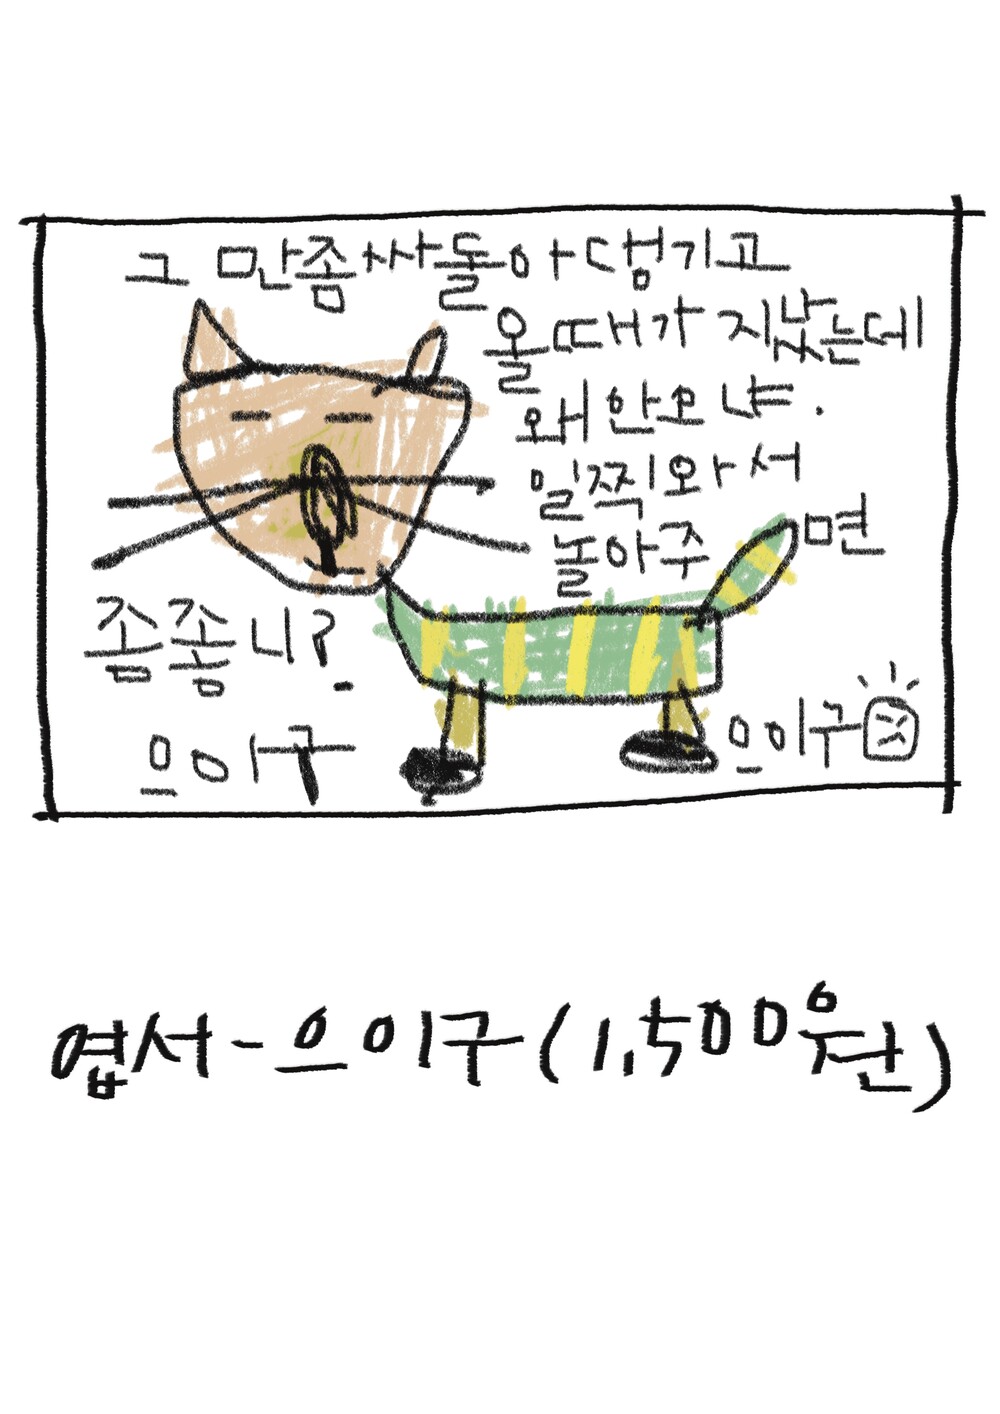 그 만좀싸돌아댕기고
올때가 지났는데
왜안오냐.
일찍와서
놀아주면
좀좋니?
으이구
으이구
엽서-으이구(1,500원)